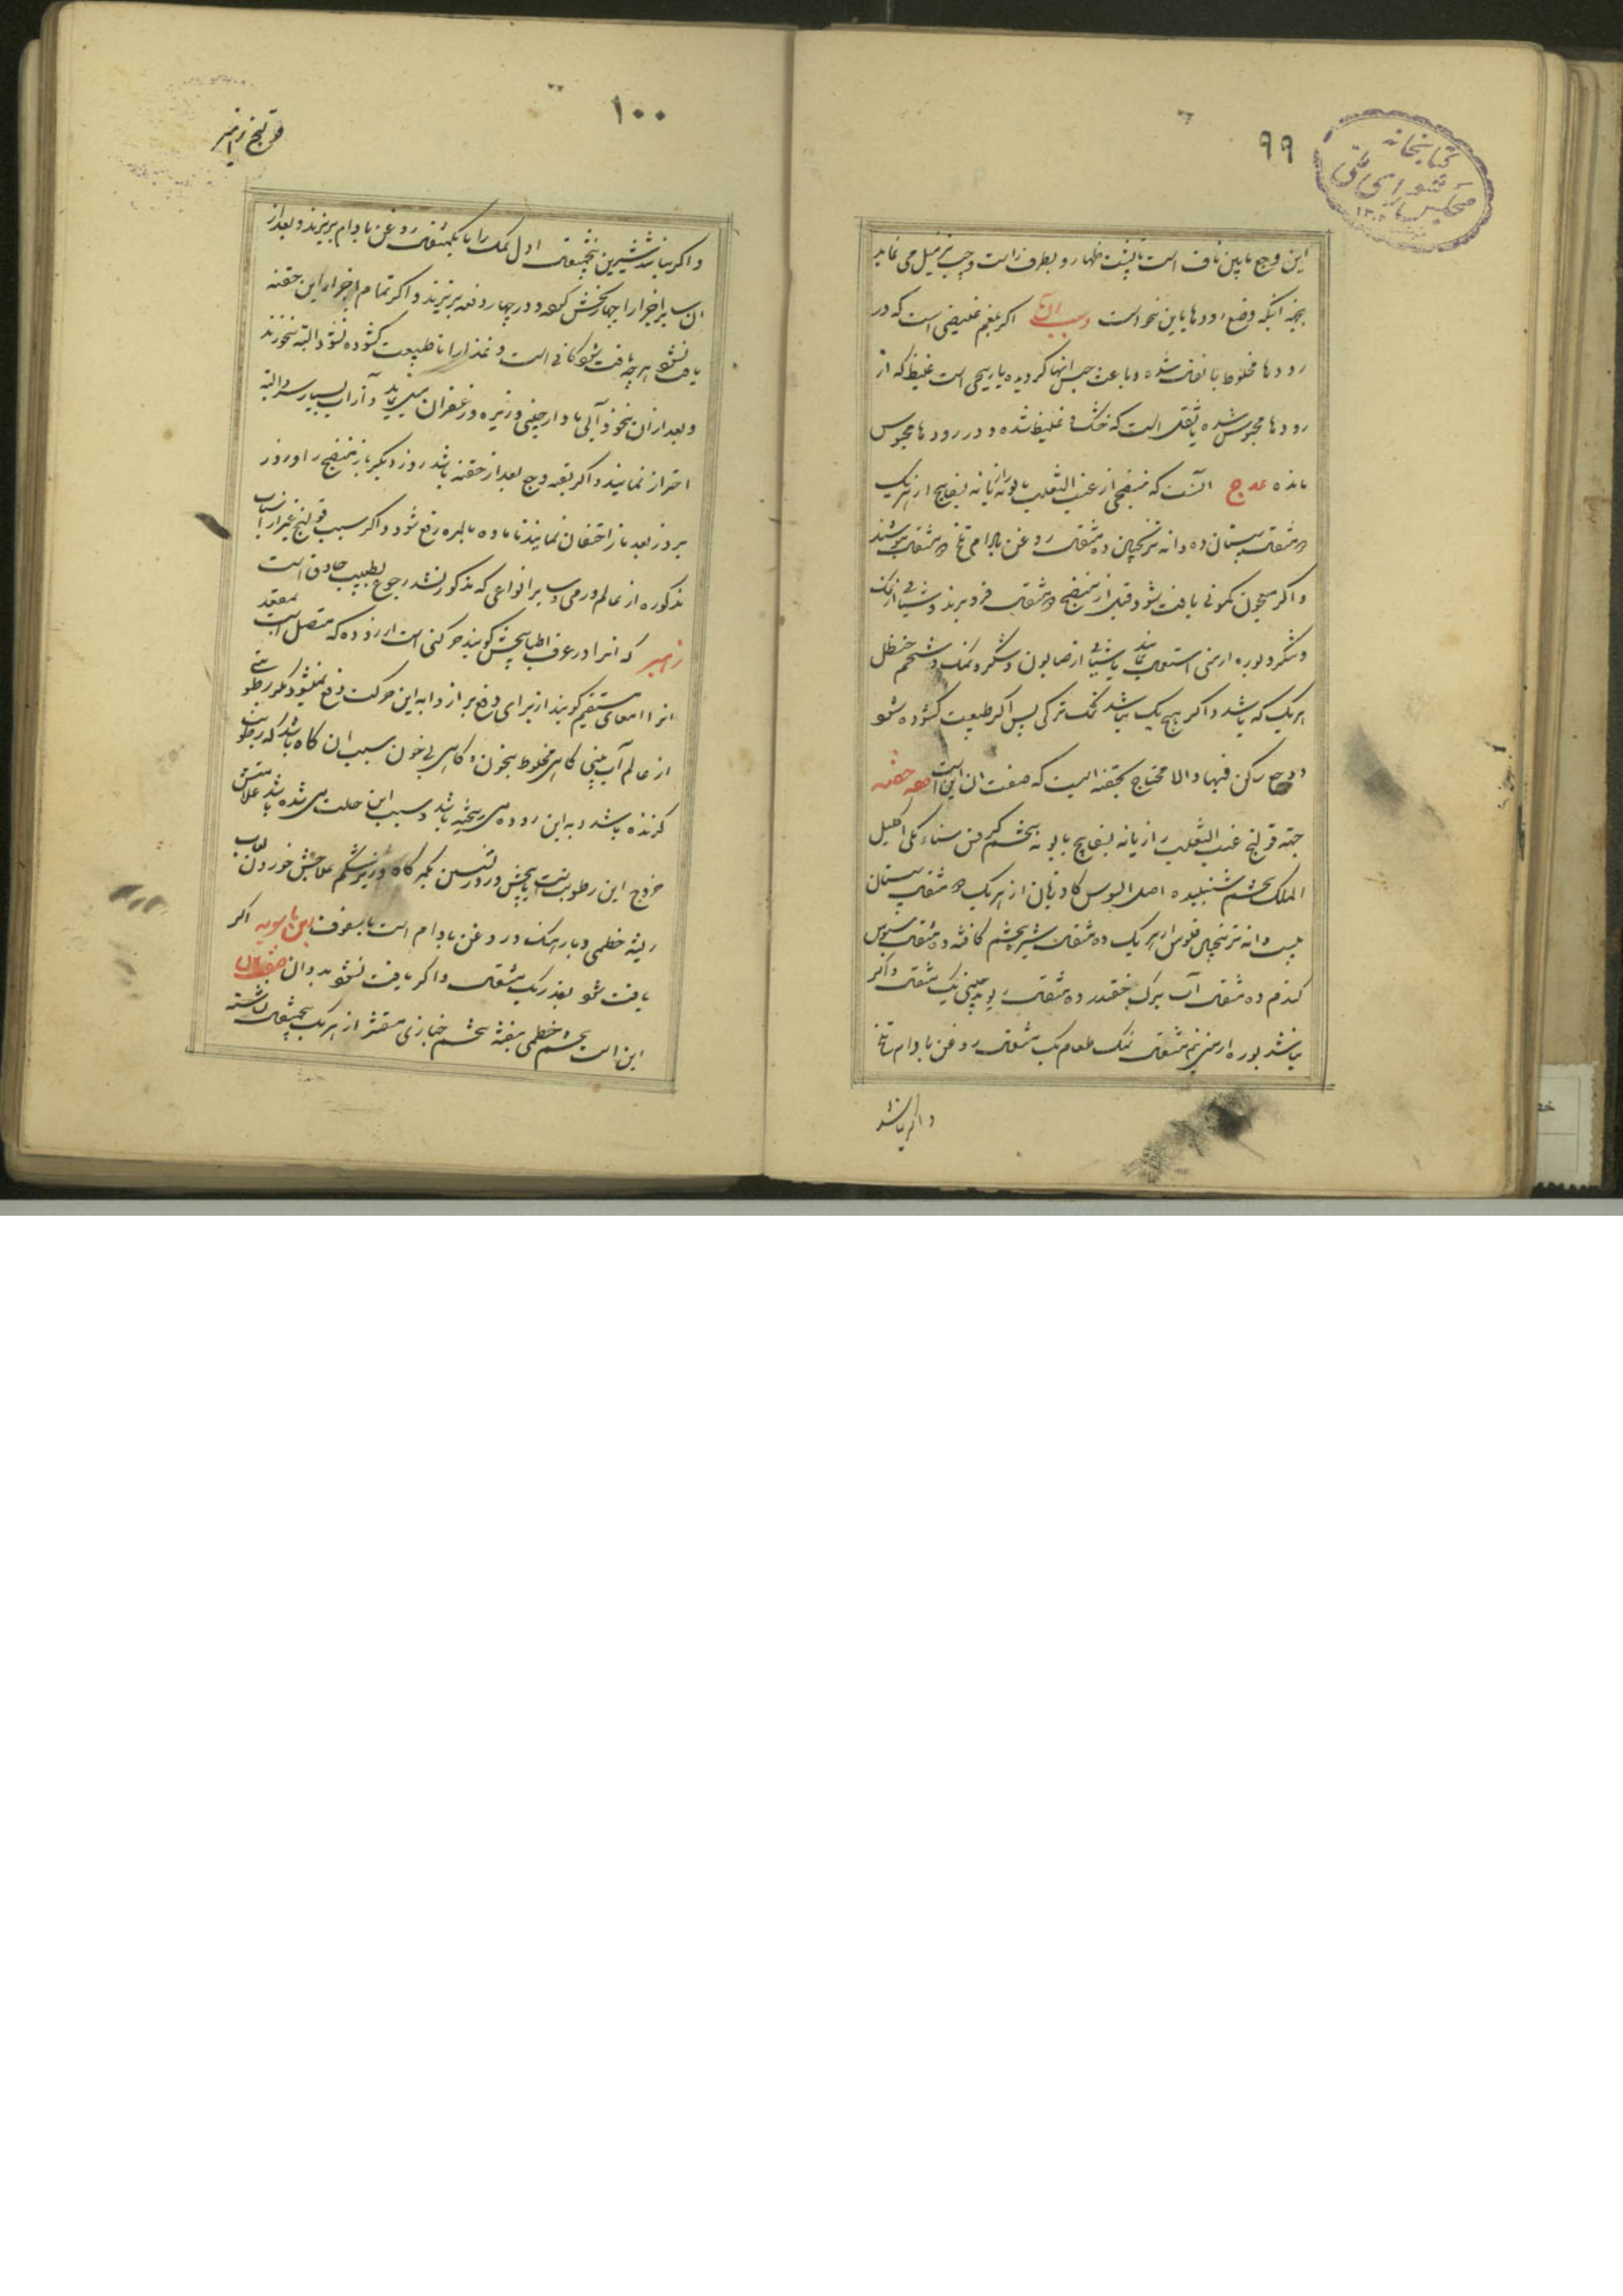 ۹۹
کتابخانه
مجلس شورای ملی
این وجع مابین ناف است تا پشت ظهار و بطرف راست و چپ نیز میل می نماید
بجهة انکه وضع رودها باین نحو است و سبب ان یا اکر بلغم غلیضی است که در
رودها مخلوط با ثفل شده و باعث حبس انها کردیده یا ریحی است غلیظ که از
رودها محبوس شده یا ثفلی است که خشک و غلیظ شده و در رودها محبوس
مانده علاج انست که منضجی از عنب الثعلب بابونه رازیانه بسفایج از هریک
دو مثقال سپستان ده دانه ترنجبین ده مثقال روغن بادام تلخ دو مثقال بنوشند
و اکر معجون کمونی یافت شود قبل از منضج دو مثقال فرو برند و شیافی از نمک
و شکر و بوره ارمنی استعمال نمایند یا شیافی از صابون و شکر و نمک و شحم حنظل
هریک که باشد و اکر هیچ یک نباشد نمک ترکی پس اکر طبیعت کشوده شو
و وجع ساکن فبها و الا محتاج بحقنه ایست که صفت ان این است صفه حقنه
جهة قولنج عنب الثعلب رازیانه بسفایج بابونه تخم کرفس سناء مکی اکلیل
الملک تخم شنبلیده اصل السوس کاوزبان از هریک دو مثقال سپستان
بیست دانه ترنجبین فلوس از هریک ده مثقال شیره تخم کافشه ده مثقال سبوس
کندم ده مثقال آب برک چغندر ده مثقال ریوند چینی یک مثقال و اکر
نباشد بوره ارمنی نیم مثقال نمک طعام یک مثقال روغن بادام تلخ
و اکر نباشد
۱۰۰
قولنج زحیر
و اکر نباشد شیرین پنجمثقال اول نمک را با یکمثقال روغن بادام بریزند و بعد از
ان سایر اجزا را چهار بخش کرده و در چهار دفعه بریزند و اکر تمام اجزاء این حقنه
یافت نشو هر چه یافت شو کافی است و غذا را تا طبیعت کشوده نشود البته نخورند
و بعد از ان نخود آبی با دارچینی و زیره و زعفران میل نماید و از آب بسیار سرد البته
احتراز نمایند و اکر بقیه وجع بعد از حقنه باشد روز دیکر باز منضج را و روز
بروز بعد باز احتقان نمایند تا ماده بالمره رفع شود و اکر سبب قولنج غیر از اسباب
مذکوره از عالم ورمی و سایر انواعی که مذکور نشد رجوع بطبیب حاذق است
زحیر که انرا در عرف اطبا پیچش کویند حرکتی است از روده که متصل است بمقعد
انرا امعای مستقیم کویند از برای دفع براز و ابه این حرکت دفع نمیشود مکر رطوبتی
از عالم آب بینی کاهی مخلوط بخون و کاهی بی خون سبب ان کاه باشد که رطوبت
کزنده باشد و به این روده می ریخته باشد و سبب این حالت می شده باشد علامتش
خروج این رطوبت است با پیچش و درد نشستن بکمر کاه و زیر شکم علاجش خوردن لعاب
ریشه خطمی و بارهنک در روغن بادام است با سفوف این بابویه اکر
یافت شو بقدر یک مثقال و اکر یافت نشو بدون ان
این است تخم خطمی بنفشه تخم خبازی مقشر از هریک پنجمثقال نشاسته